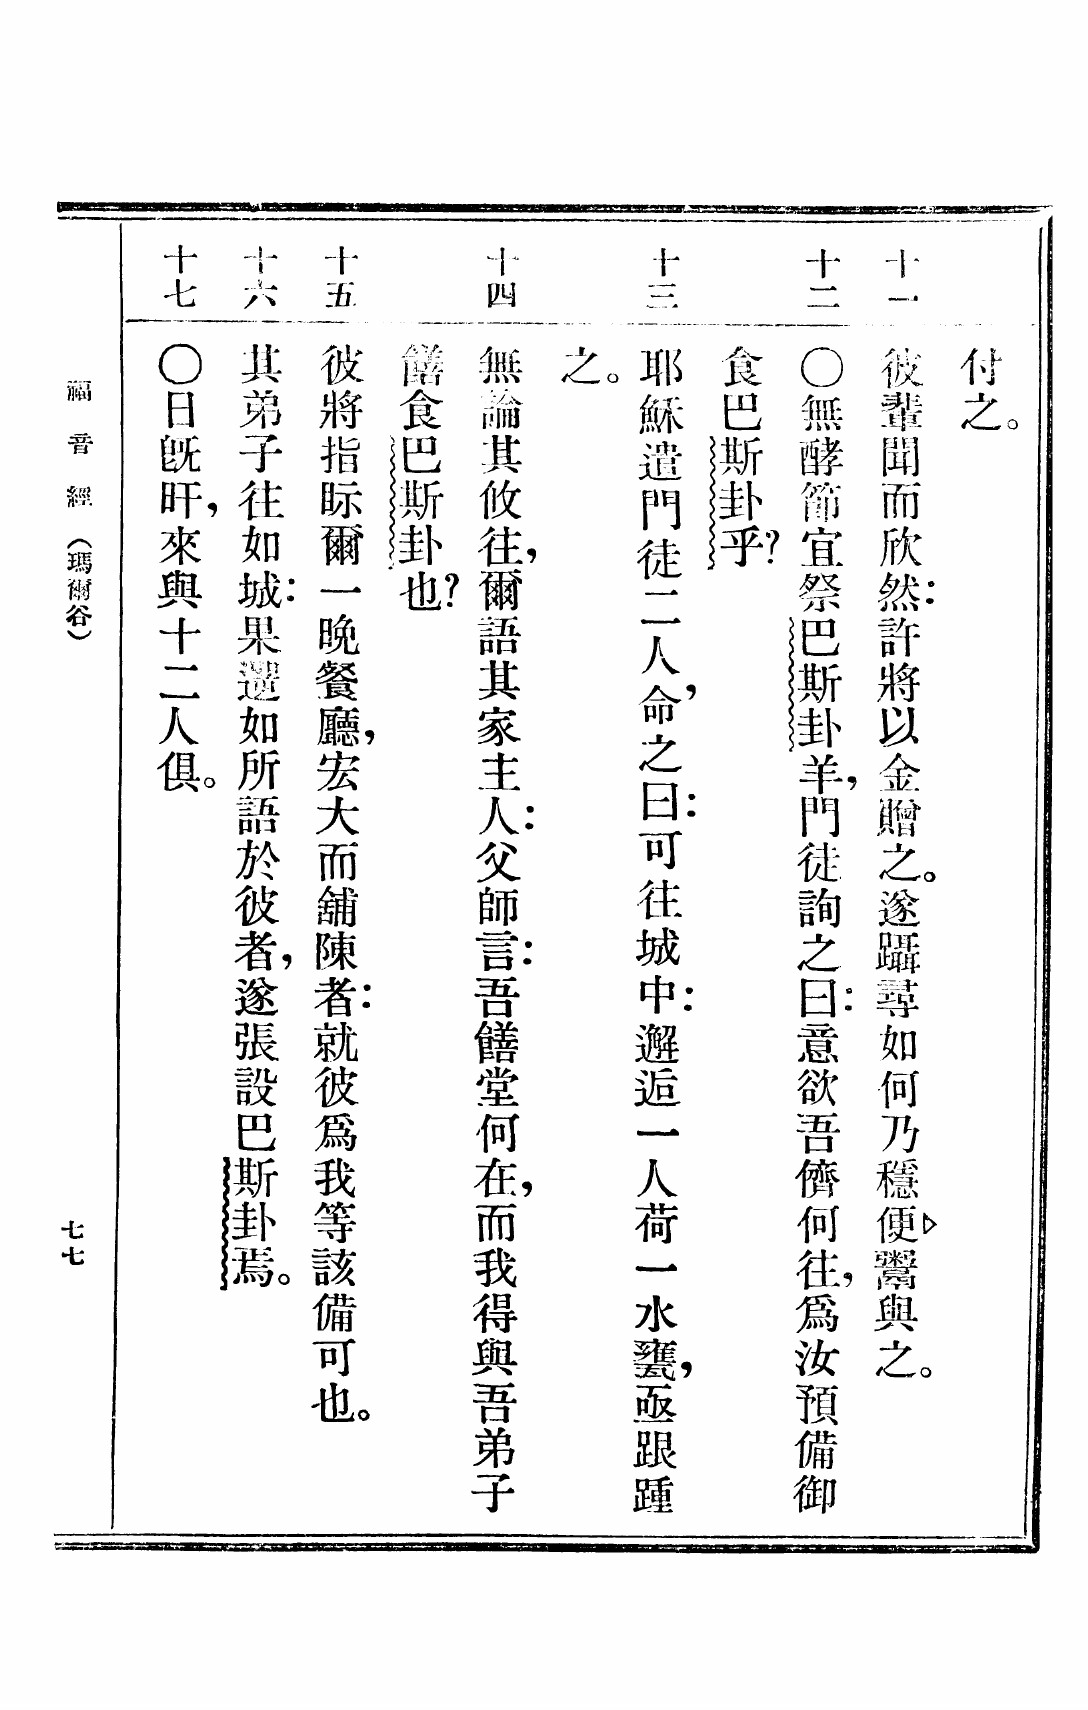 付之。
十一 彼輩聞而欣然：許將以金贈之。遂躡尋如何乃穩便鬻與之。
十二 〇無酵節宜祭巴斯卦羊，門徒詢之曰：意欲吾儕何往，爲汝預備御
食巴斯卦乎？
十三 耶穌遣門徒二人，命之曰：可往城中：邂逅一人荷一水甕，亟跟踵
之。
十四 無論其攸往，爾語其家主人：父師言：吾饍堂何在，而我得與吾弟子
饍食巴斯卦也？
十五 彼將指眎爾一晚餐廳，宏大而舖陳者：就彼爲我等該備可也。
十六 其弟子往如城：果遌如所語於彼者，遂張設巴斯卦焉。
十七 〇日旣旰，來與十二人俱。
福音經（瑪爾谷）
七七